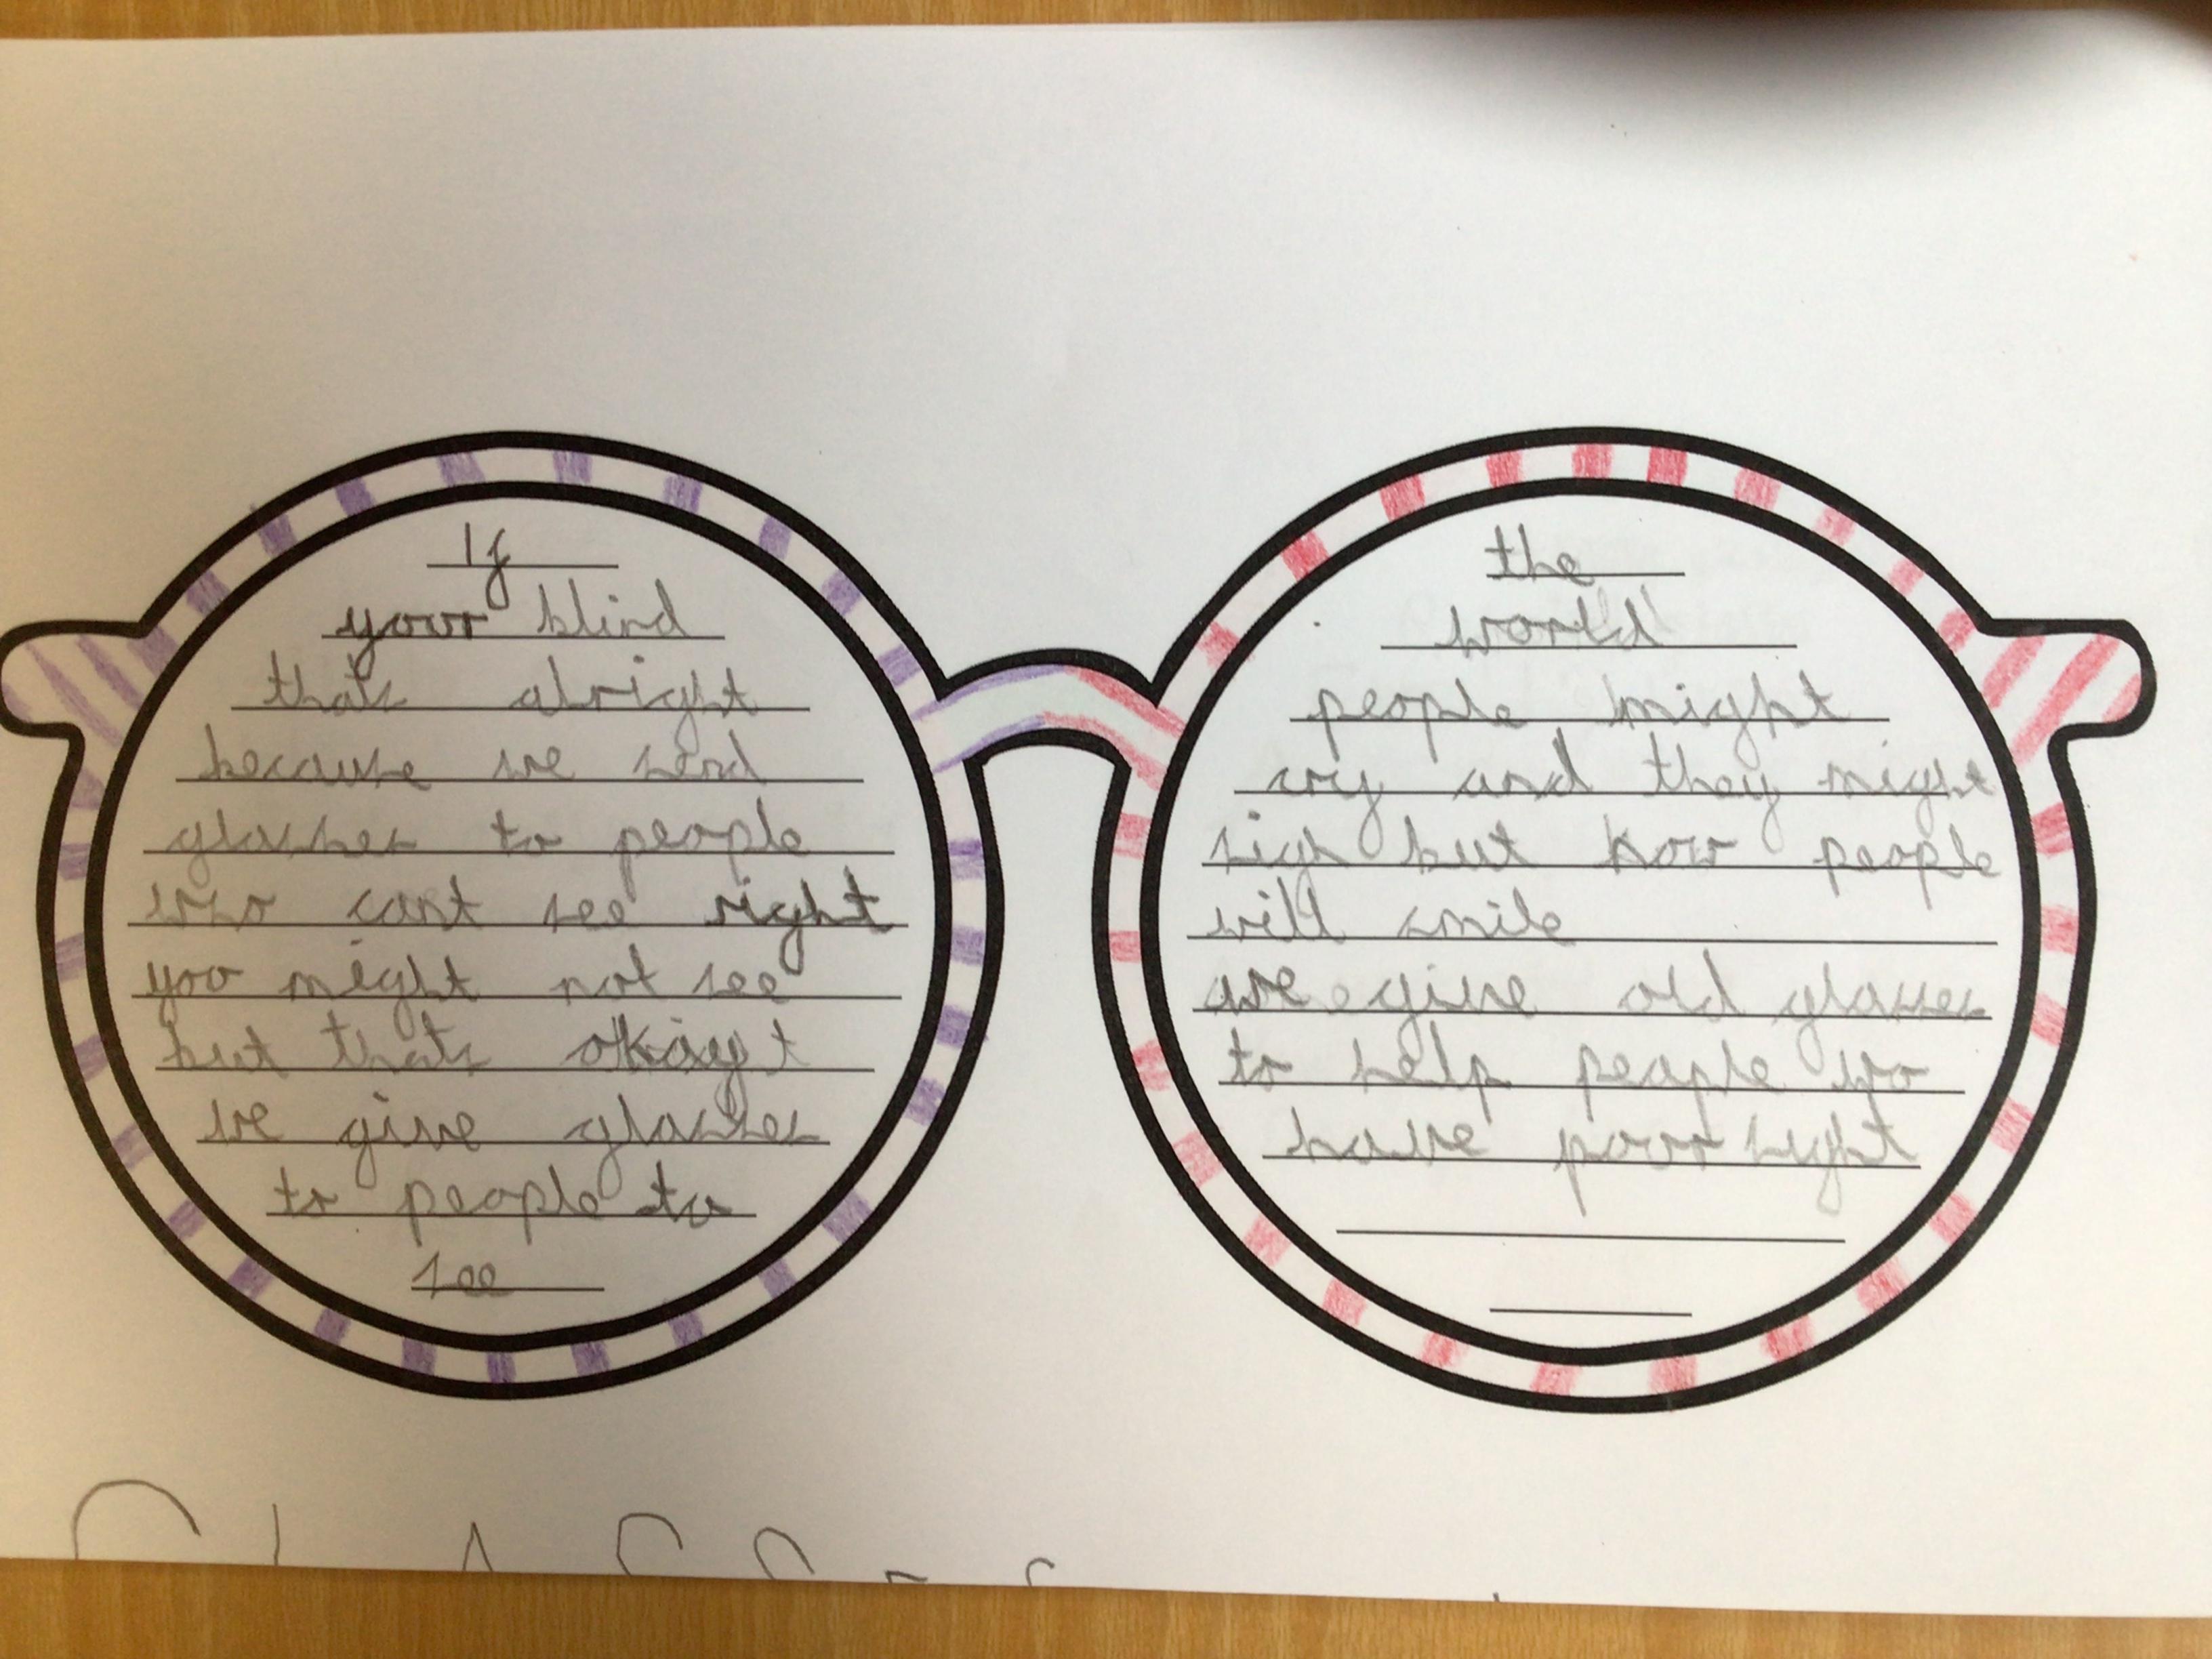 If
your blind
thats alright
because we send
glasses to people
who cant see right
you might not see
but thats okay
we give glasses
to people to
see
the
world
people might
cry and they might
sigh but poor people
will smile
we give old glasses
to help people who
have poor sight